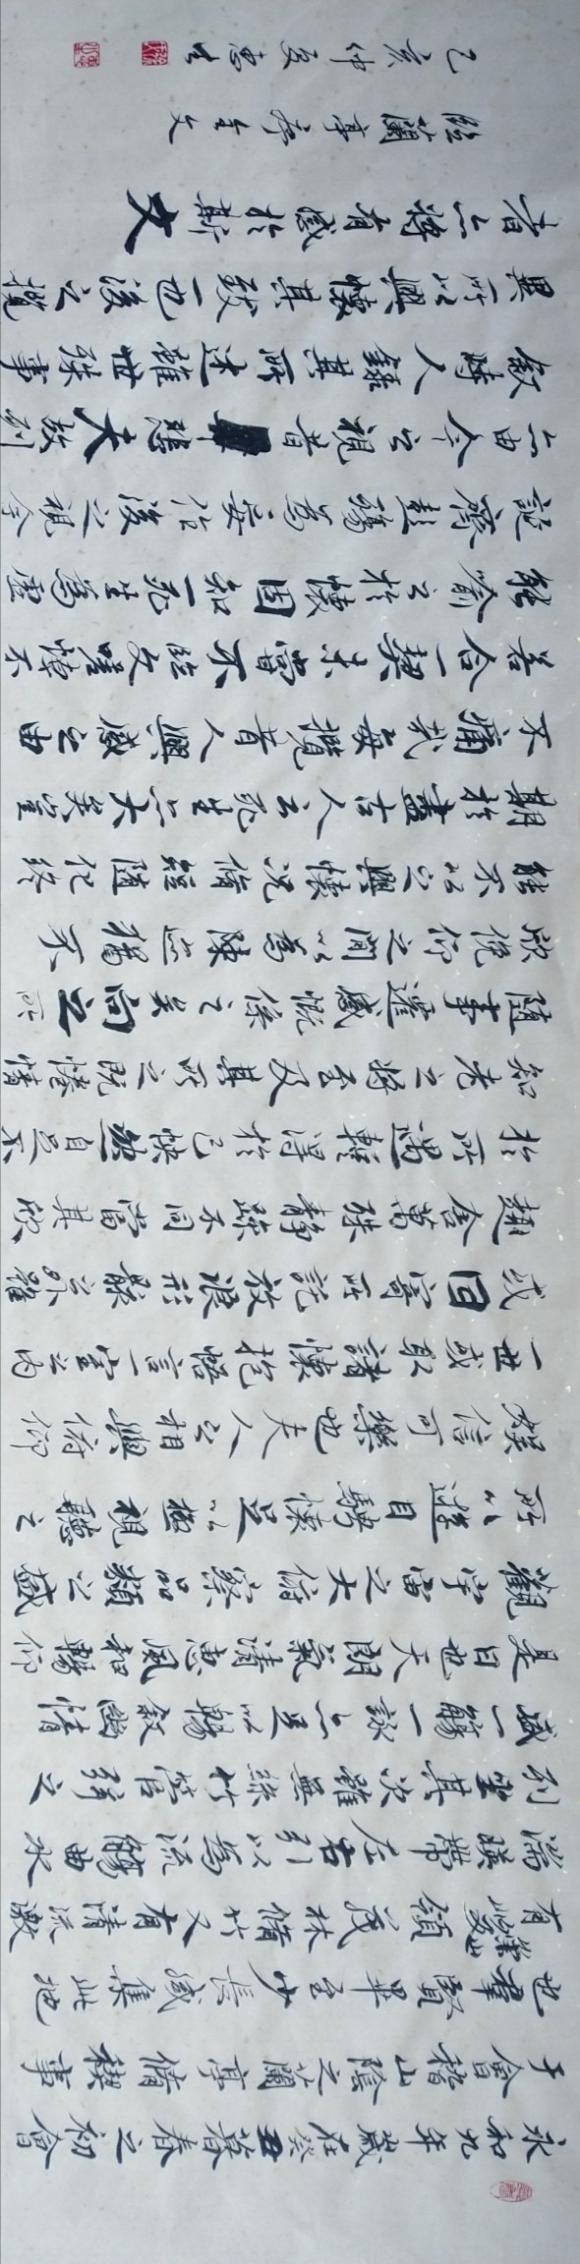 永和九年歲在癸丑暮春之初會
于會稽山陰之蘭亭脩稧事
也羣賢畢至少長咸集此地
有崇山峻領茂林脩竹又有清流激
湍暎帶左右引以為流觴曲水
列坐其次雖無絲竹管弦之
盛一觴一詠亦足以暢叙幽情
是日也天朗氣清惠風和暢仰
觀宇宙之大俯察品類之盛
所以遊目騁懷足以極視聽之
娛信可樂也夫人之相與俯仰
一世或取諸懷抱悟言一室之內
或因寄所託放浪形骸之外雖
趣舍萬殊靜躁不同當其欣
於所遇輒得於己怏然自足不
知老之將至及其所之既惓情
隨事遷感慨係之矣向之所
欣俛仰之間以為陳迹猶不
能不以之興懷況脩短隨化終
期於盡古人云死生亦大矣豈
不痛哉每攬昔人興感之由
若合一契未嘗不臨文嗟悼不
能喻之於懷固知一死生為虛
誕齊彭殤為妄作後之視今
亦由今之視昔悲夫故列
敘時人錄其所述雖世殊事
異所以興懷其致一也後之攬
者亦將有感於斯文
臨蘭亭序全文
己亥仲夏惠生